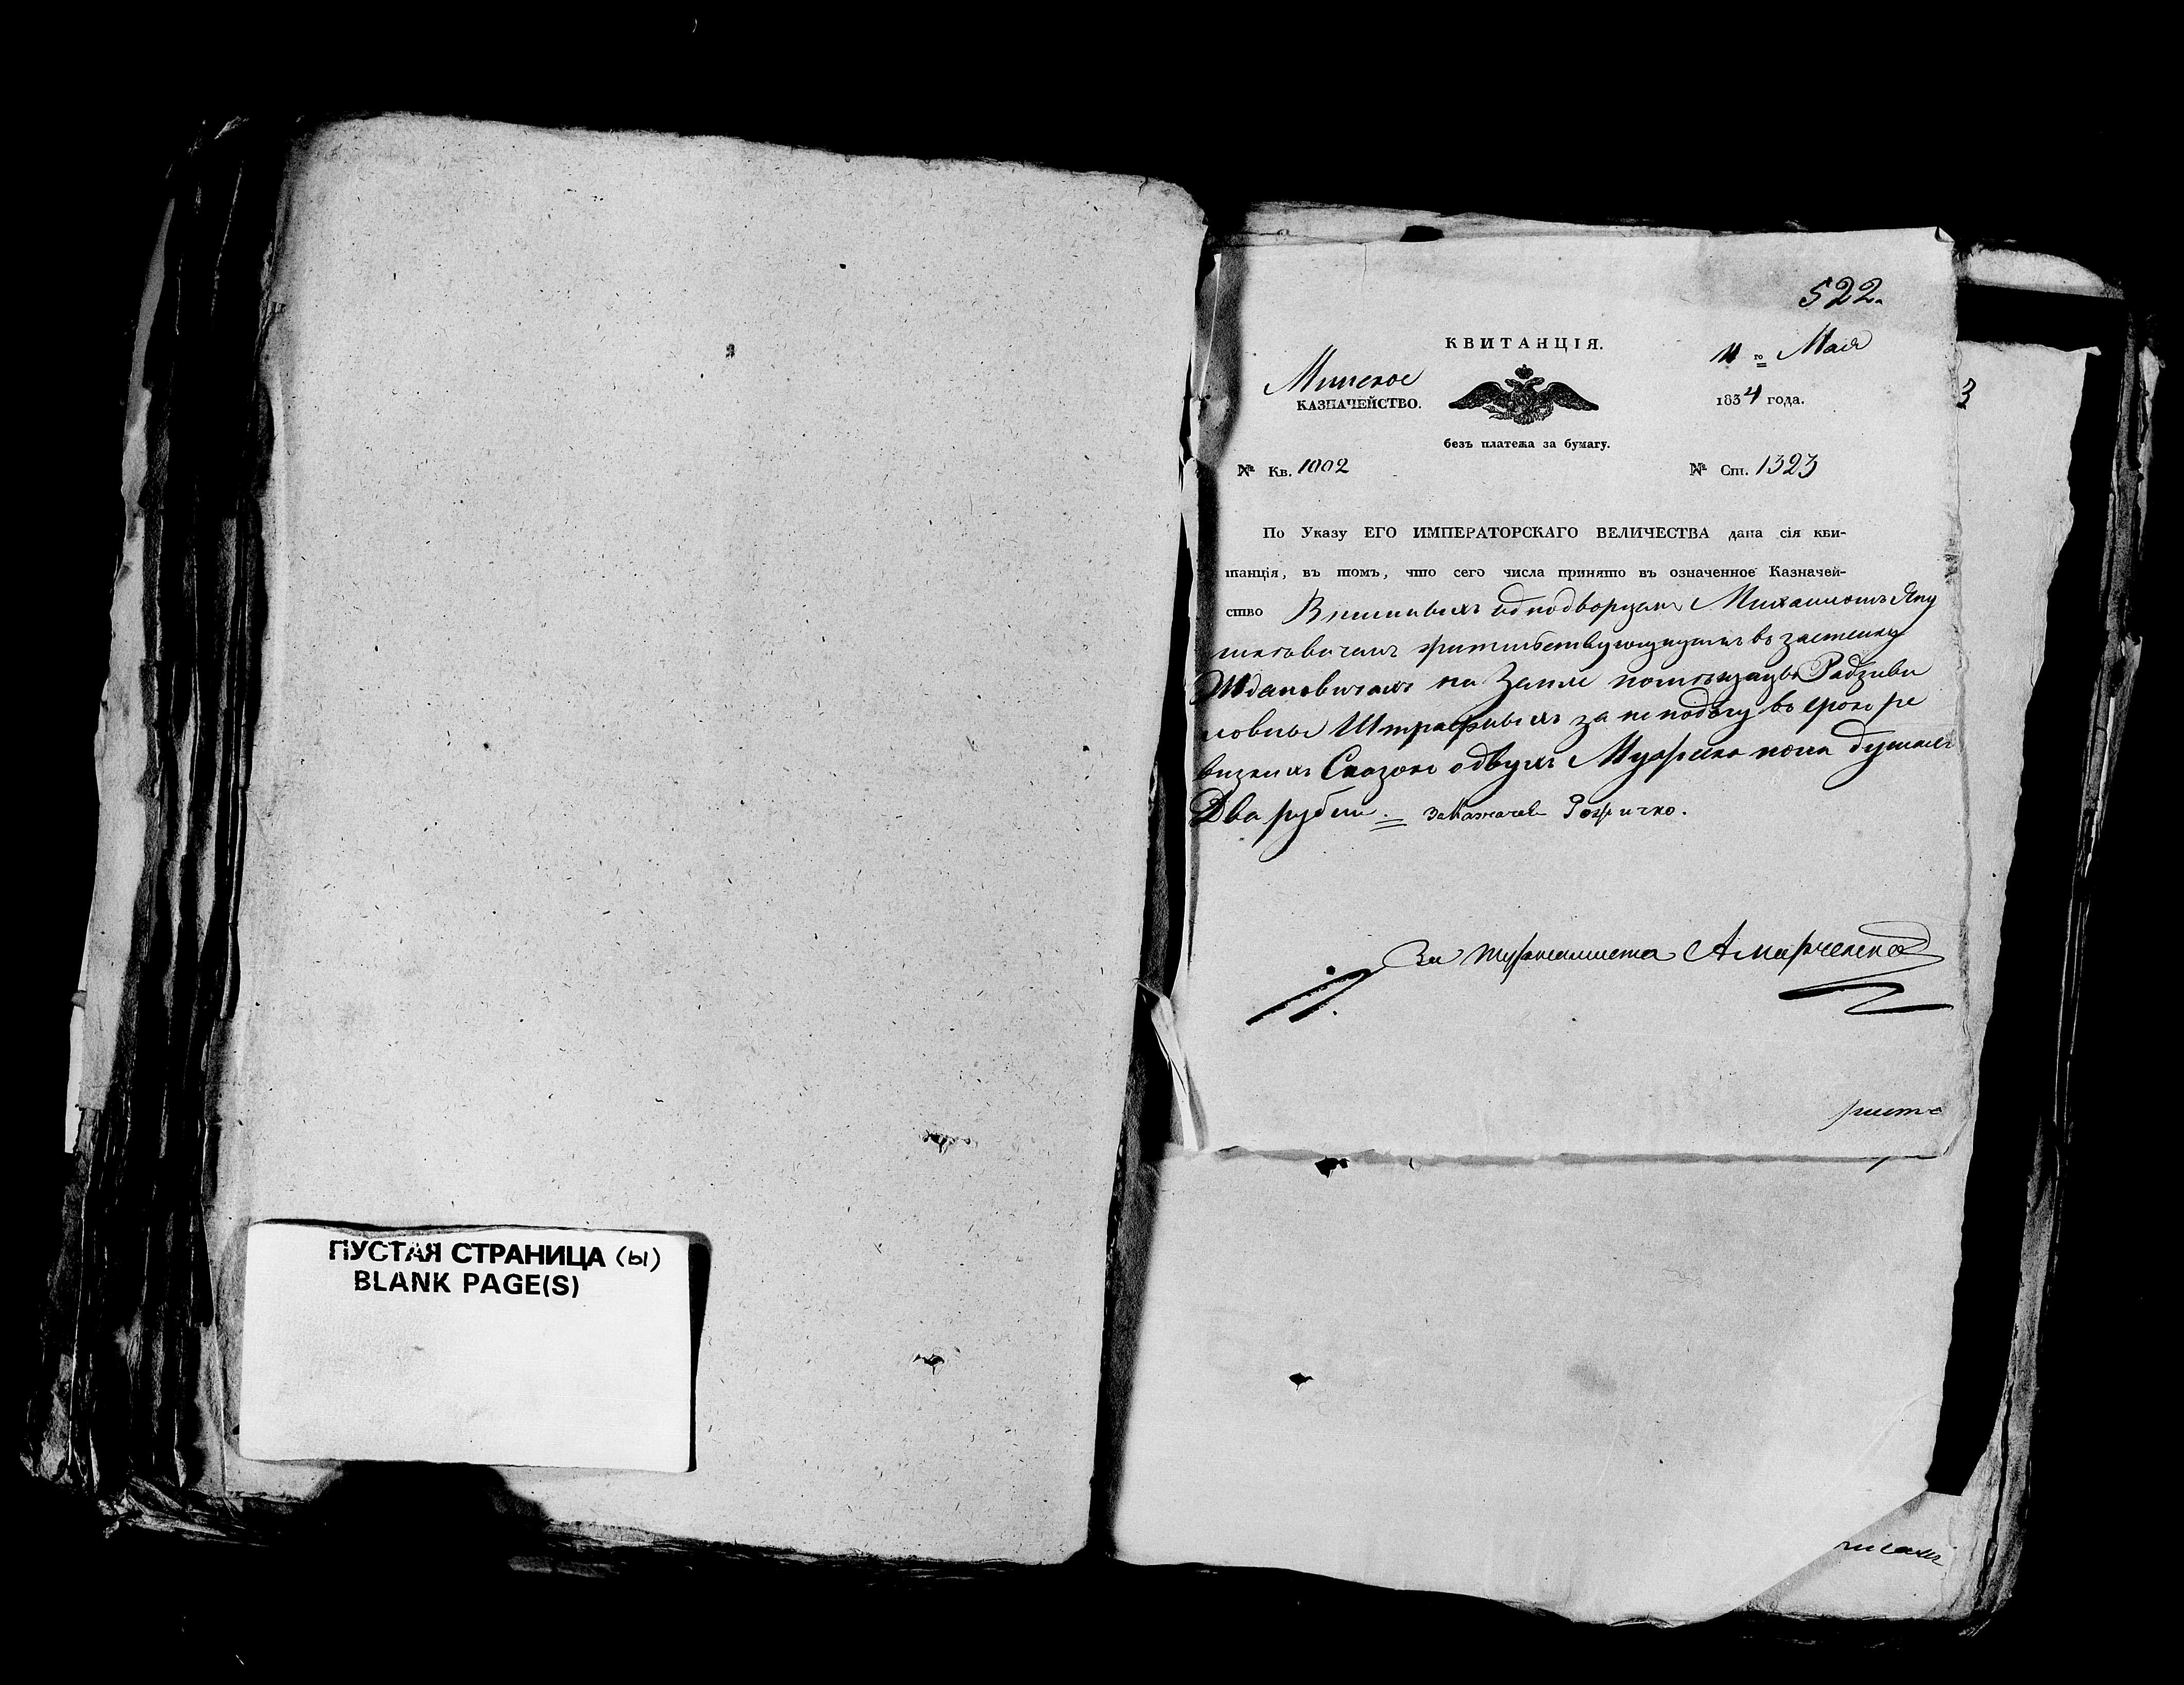 ПУСТАЯ СТРАНИЦА (ы)
BLANK PAGE(S)
522.
КВИТАНЦІЯ.
Минское
КАЗНАЧЕЙСТВО.
11 го Мая
1834 года.
безъ платежа за бумагу.
№ Кв. 1002
№ Ст. 1323
По Указу ЕГО ИМПЕРАТОРСКАГО ВЕЛИЧЕСТВА дана сія кви-
танція, въ томъ, что сего числа принято въ означенное Казначей-
ство однодворцемъ Михаиломъ Яну
жительствующимъ въ застенку
Ждановичахъ на Земле помещицы Радзиви
ловны Штрафныхъ за неподачу въ срокъ ре
визкихъ Сказокъ о двухъ Мужеска пола душахъ
Два рубли. = За Казначея
За журналиста А Марченко
3